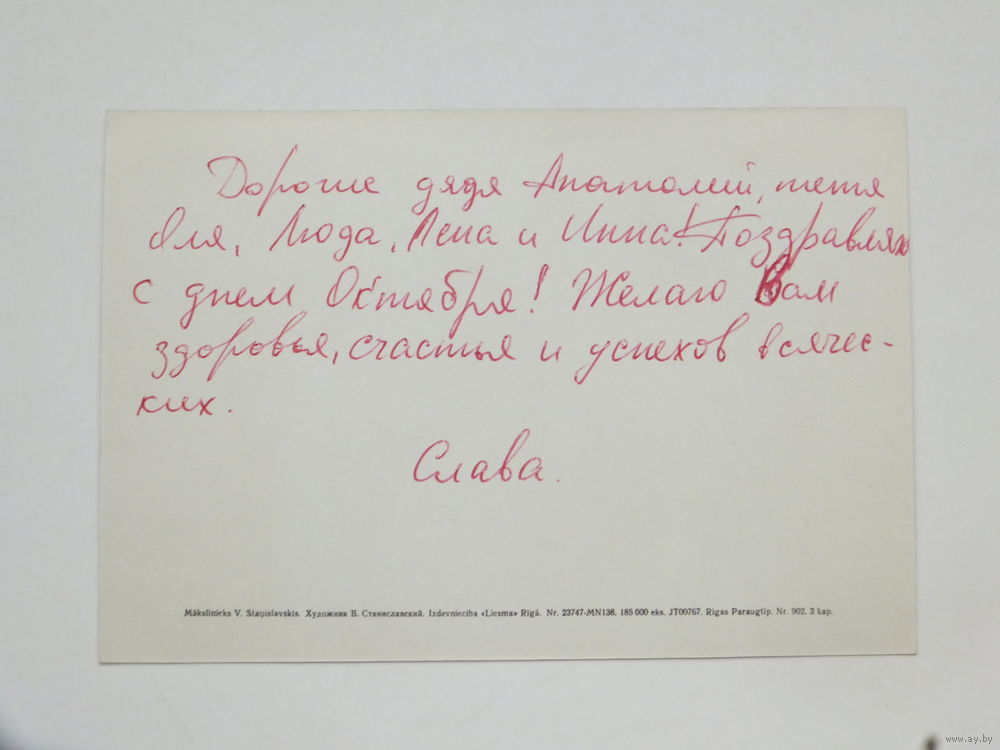 Дорогие дядя Анатолий, тетя
Оля, Люда, Лена и Инна! Поздравляю
с днем Октября! Желаю Вам
здоровья, счастья и успехов всячес-
ких.
Слава.
Mākslinieks V. Staņislavskis. Художник В. Станиславский. Izdevniecība «Liesma» Rīgā. Nr. 23747-MN138. 185 000 eks. JT00767. Rīgas Paraugtip. Nr. 902. 3 kap.
www.ay.by